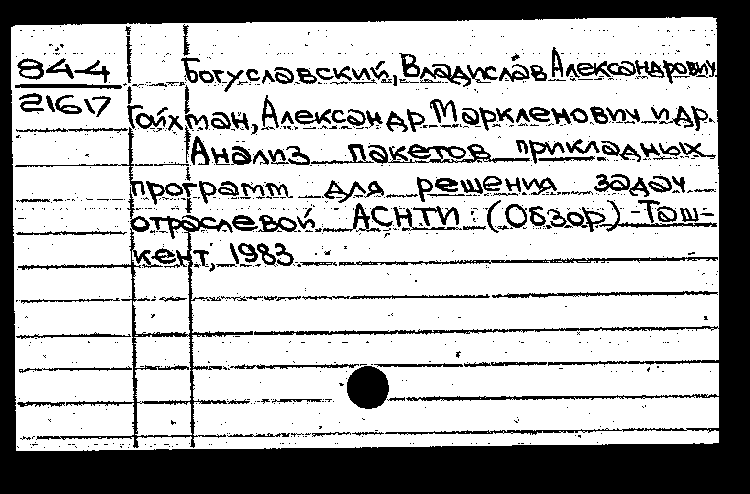 84-4
21617
Богуславский, Владислав Александрович
Гойхман, Александр Маркленович и др.
Анализ пакетов прикладных
программ для решения задач
отраслевой АСНТИ: (Обзор) -Таш-
кент, 1983